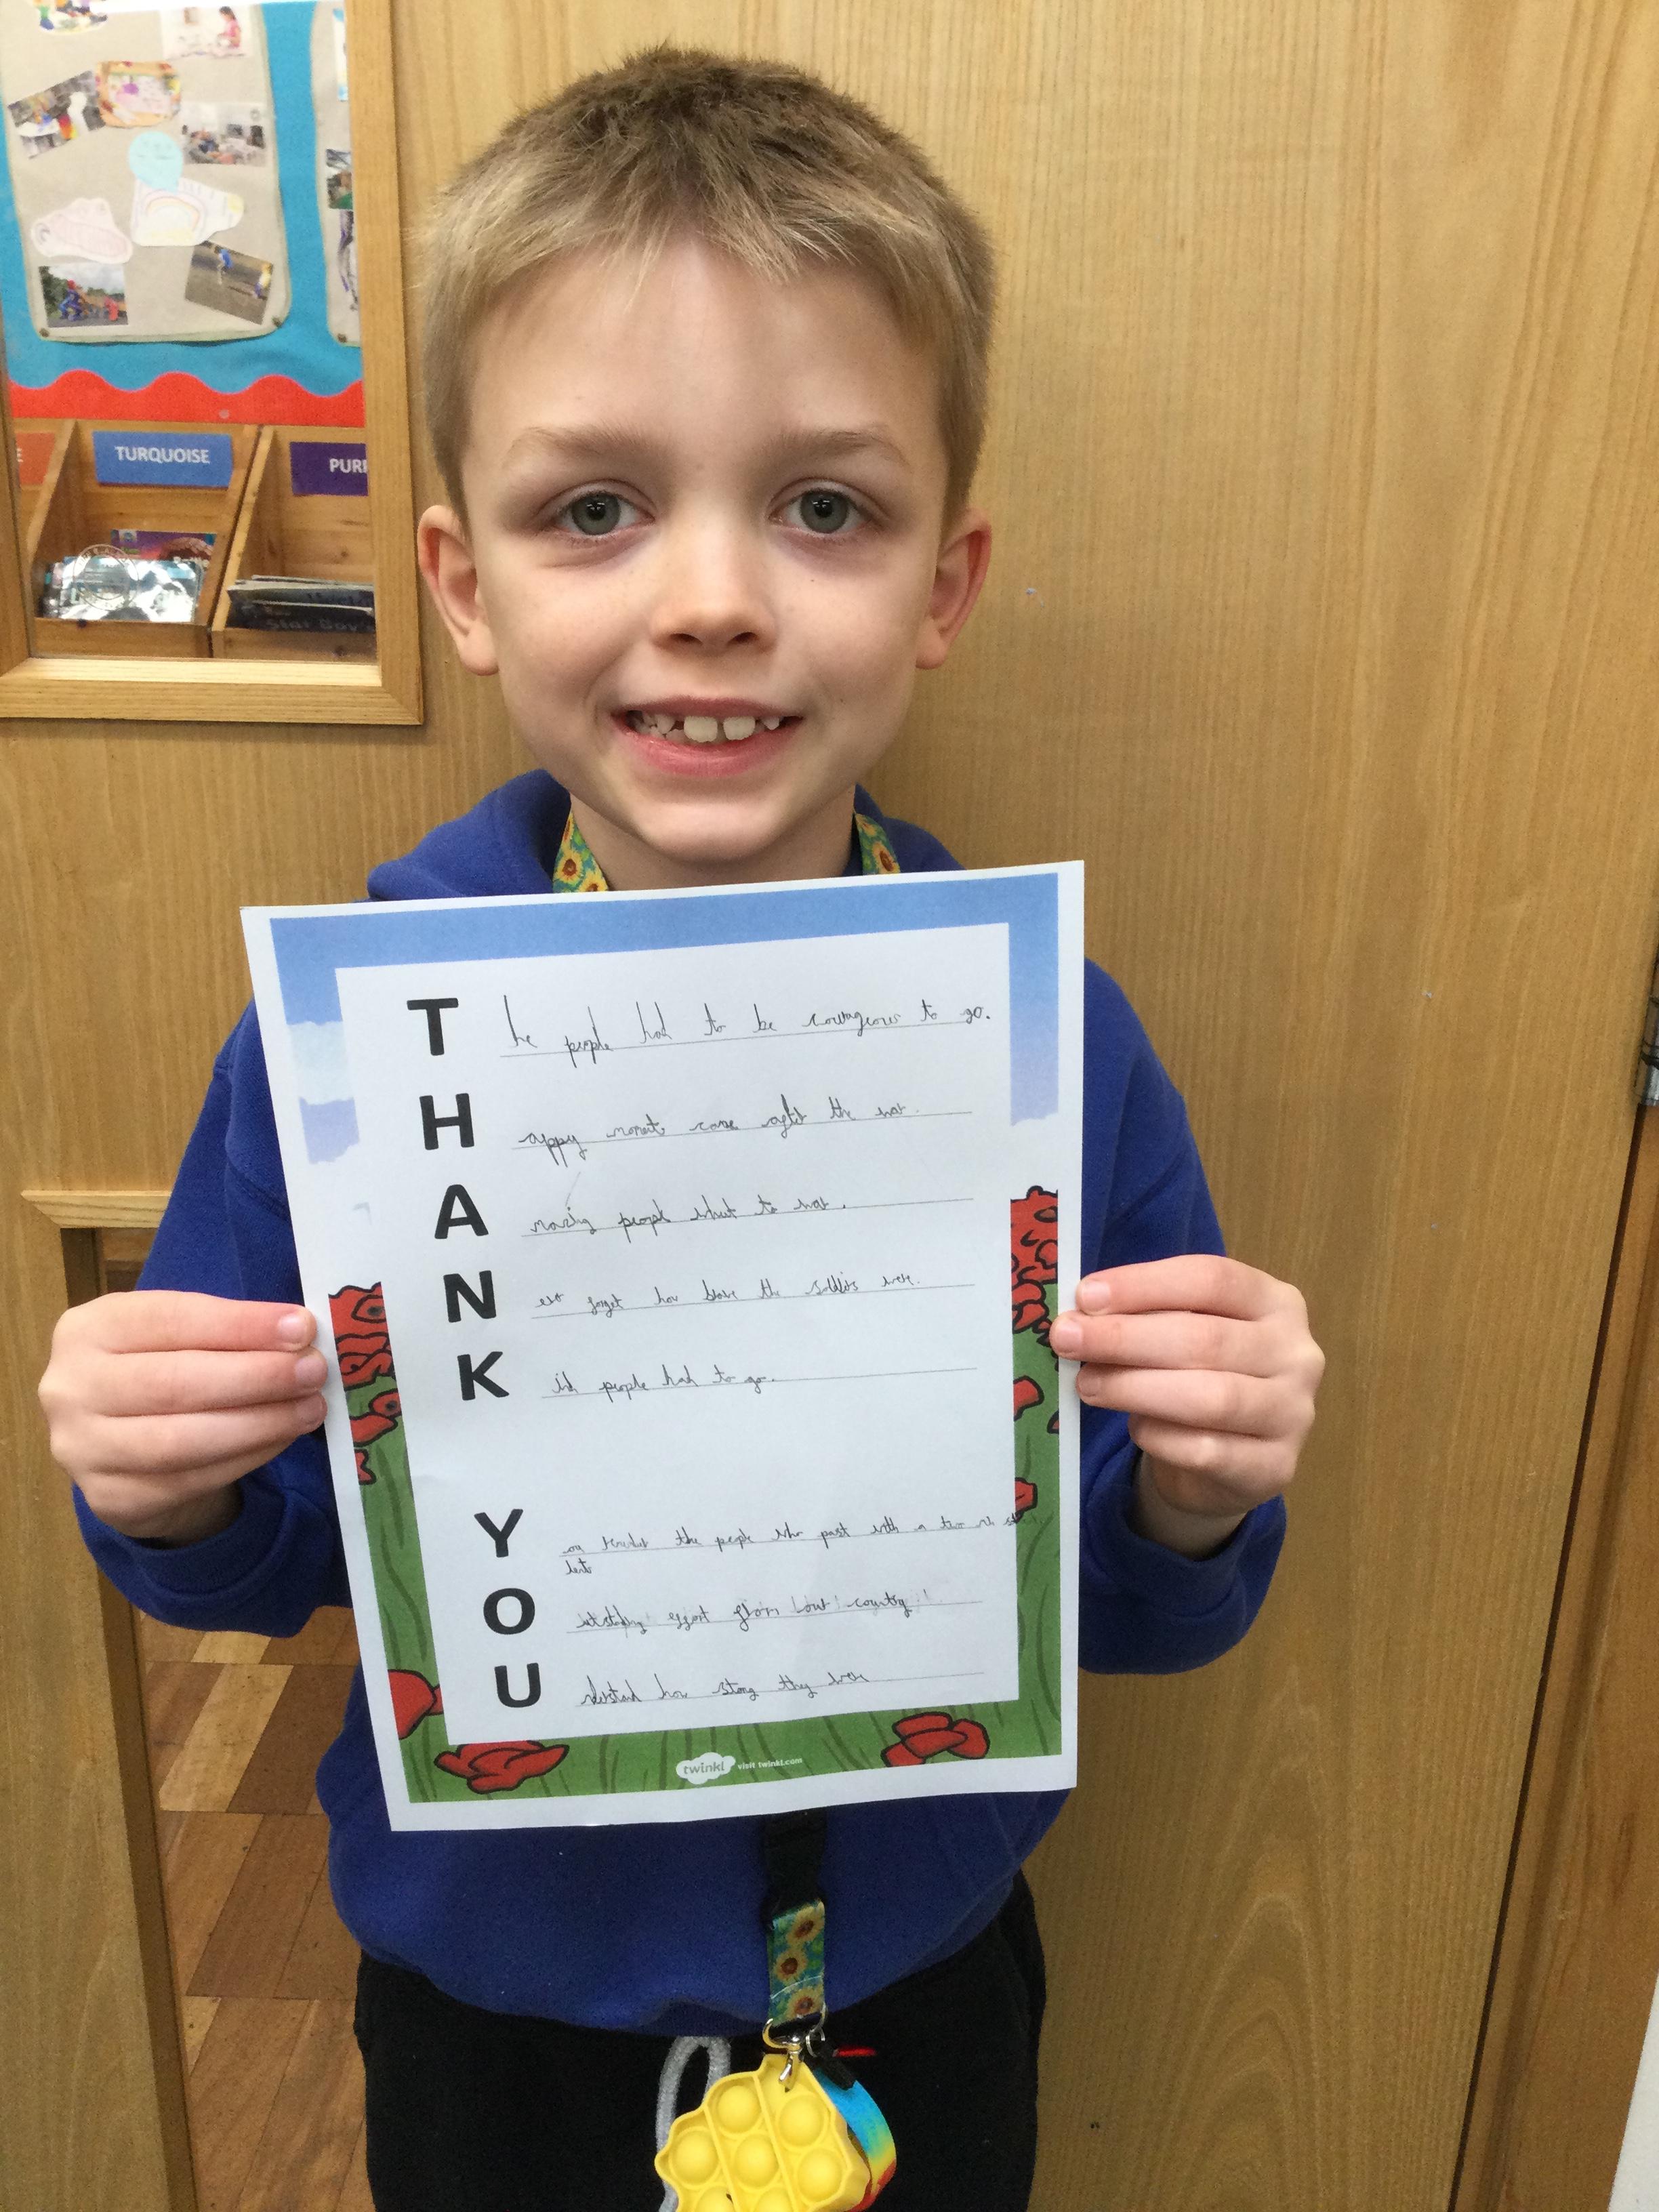 TURQUOISE
PUR
The people had to be courageous to go.
Happy moments came after the war.
Amazing people went to war.
Never forget how brave the were.
Kind people had to go.
You the people who past with a two
Outstanding effort from country!!
Understand how strong they were
twinkl visit twinkl.com